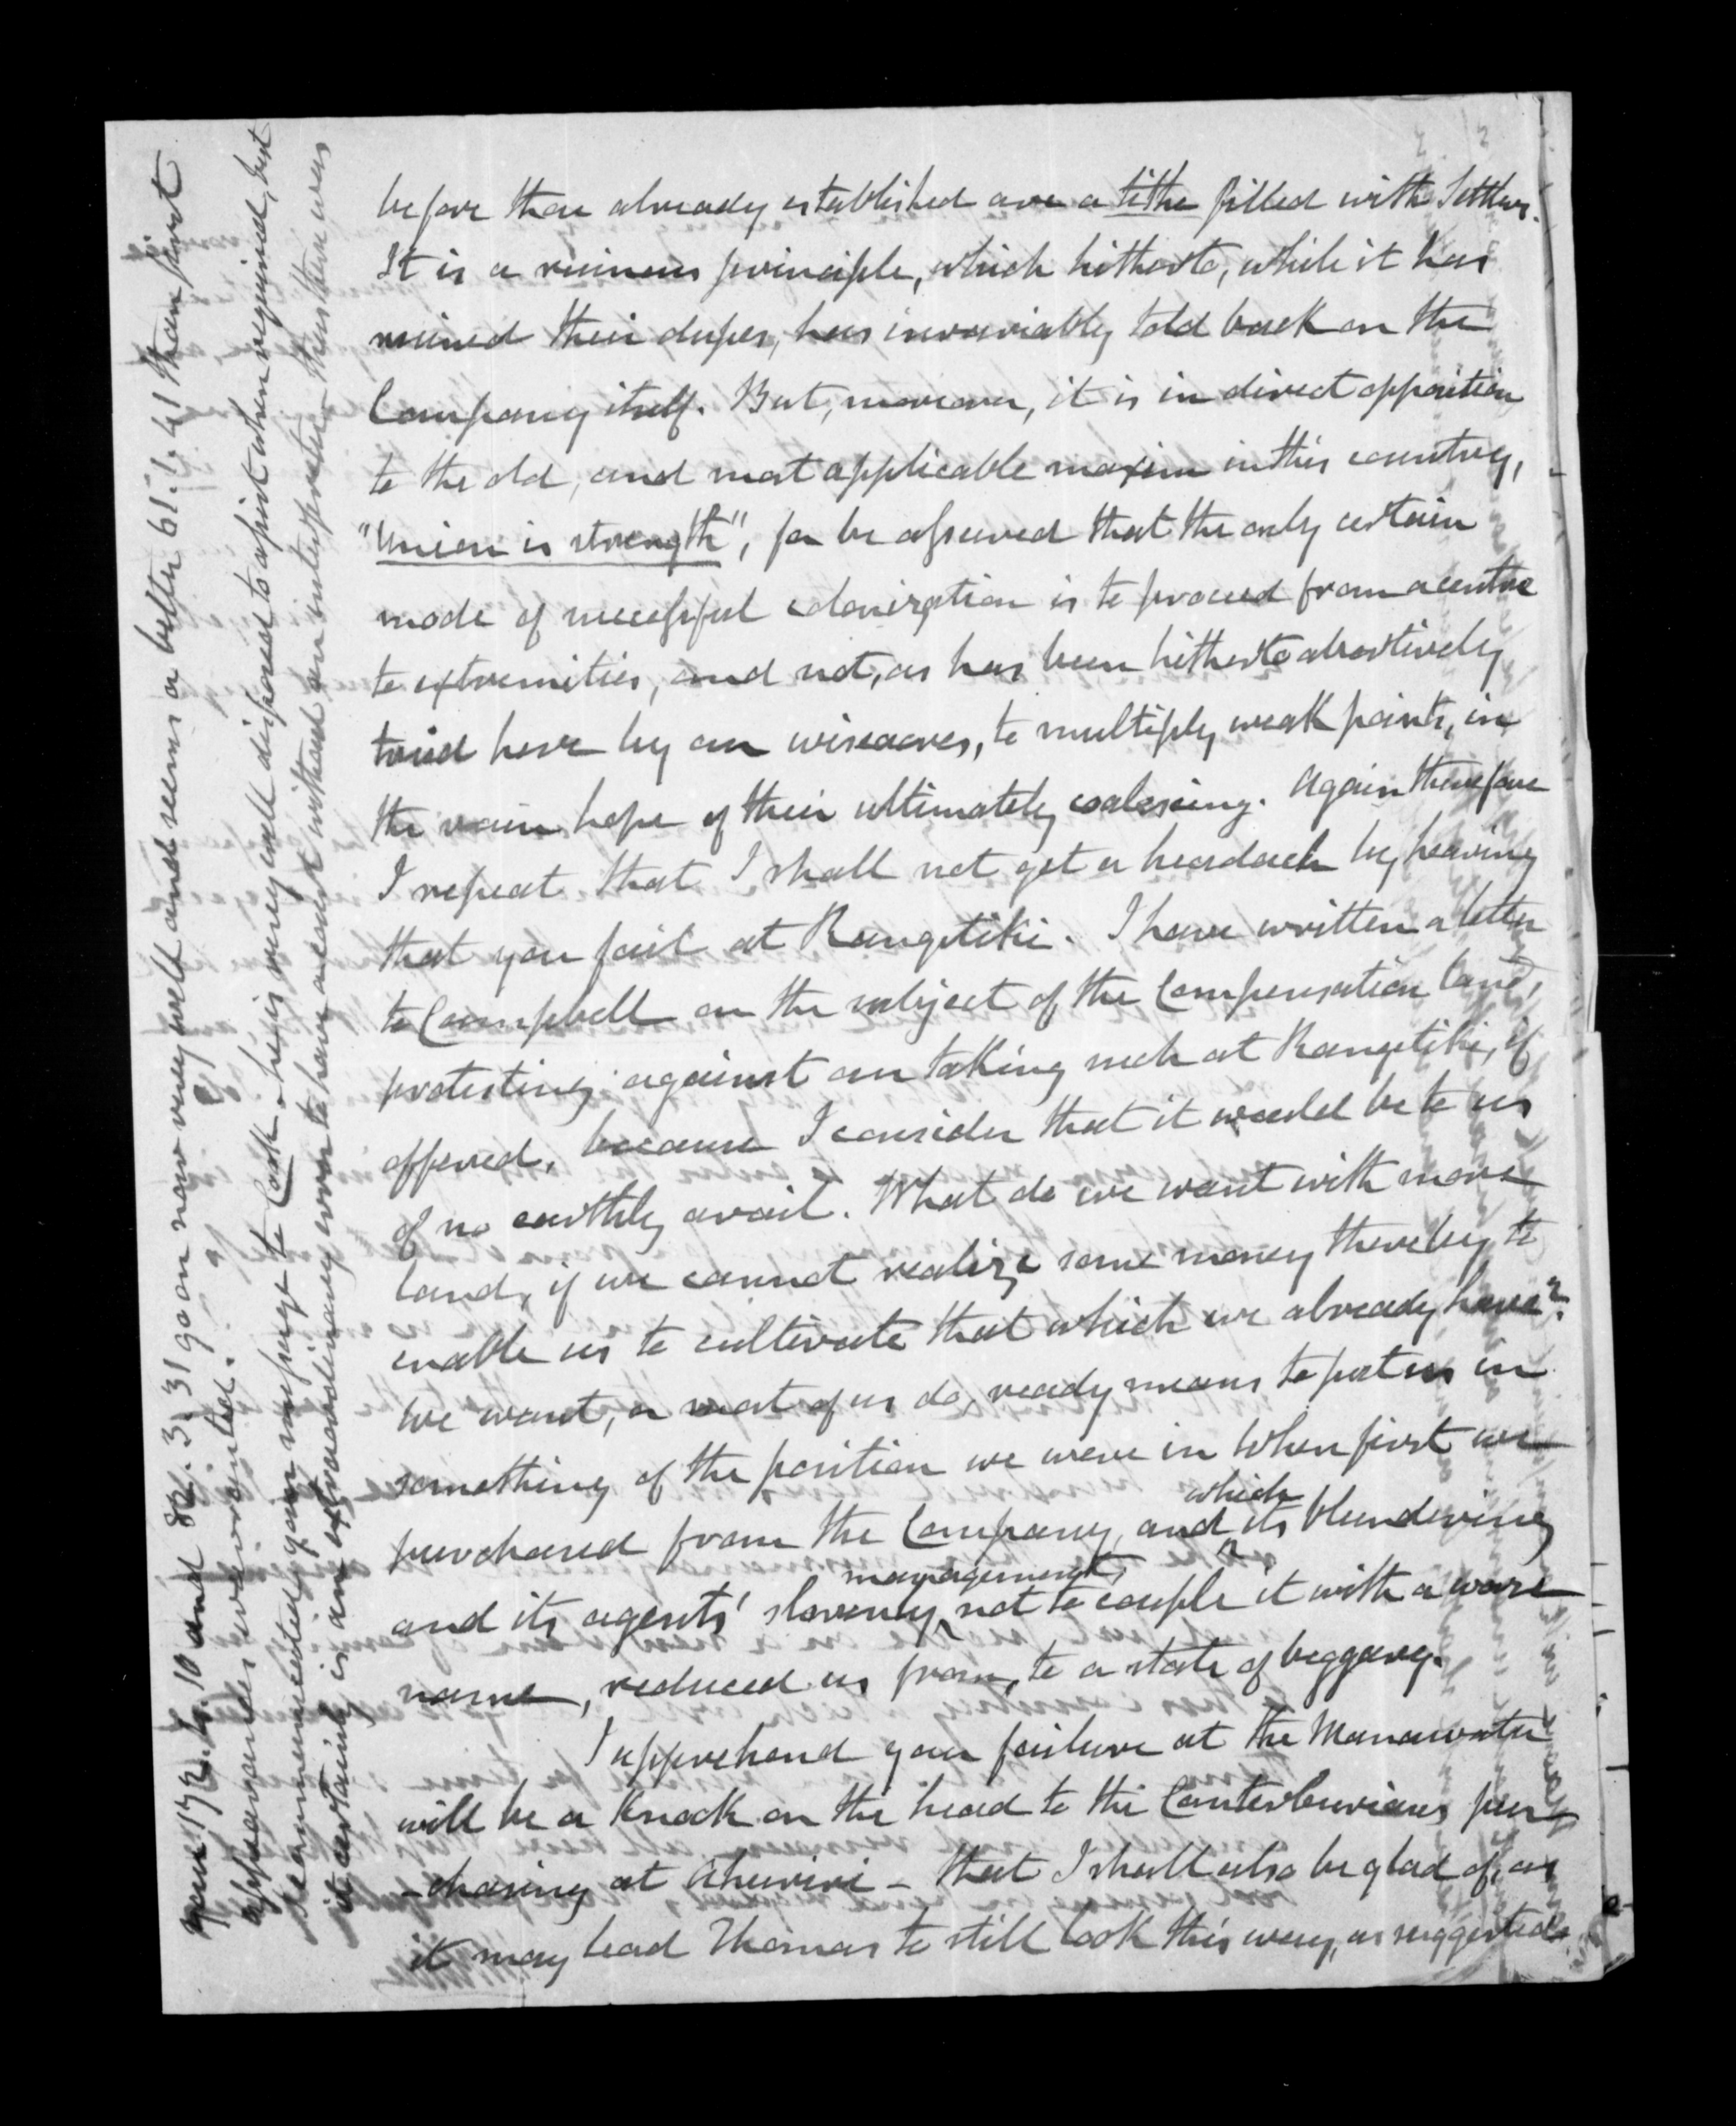 before those already established are a tithe filled with Settlers.
It is a ruinous principle, which hitherto, while it has
ruined their dupes, has invariably told back on the
Company itself. But, moreover, it is in direct opposition
to the old, and most applicable maxim in this country,
"Union is strength", for be assured that the only certain
mode of successful colonization is to proceed from a centre
to extremities, and not, as has been hitherto abortively
tried here by our wiseacres, to multiply weak points, in
the vain hope of their ultimately coalescing. Again therefore
I repeat that I shall not get a headach by hearing
that you fail at Rangitiki. I have written a letter
to Campbell on the subject of the Compensation land,
protesting against our taking such at Rangitiki, if
offered, because I consider that it would be to us
of no earthly avail. What do we want with more
land, if we cannot realize some money thereby to
enable us to cultivate that which we already have?
We want, or most of us do, ready means to put us in
something of the position we were in when first we
purchased from the Company, and which its blundering
and its agents' slovenly management, not to couple it with a worse
name, reduced us from, to a state of beggary.
I apprehend your failure at the Manawatu
will be a knock on the head to the Canterburians pur
-chasing at Ahuriri - that I shall also be glad of, as
it may lead Thomas to still look this way, as suggested
your 172. 6. 10 and 82. 3. 31 go on now very well and seems a better 61. 1. 41 than first
appearances warranted.
I communicated your message to Cook - he is very well disposed to assist when required, but
it certainly is an extraordinary error to have a court without an interpreter - thus there was